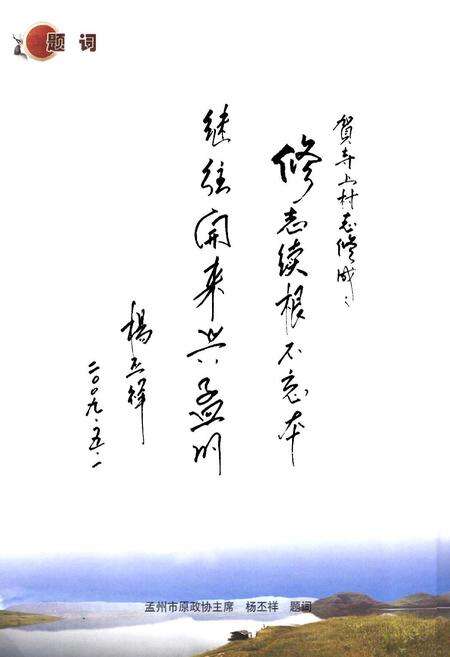 题词
贺寺上村志修成
修志续根不忘本
继往开来兴孟州
杨丕祥
二〇〇九·五·一
孟州市原政协主席 杨丕祥 题词